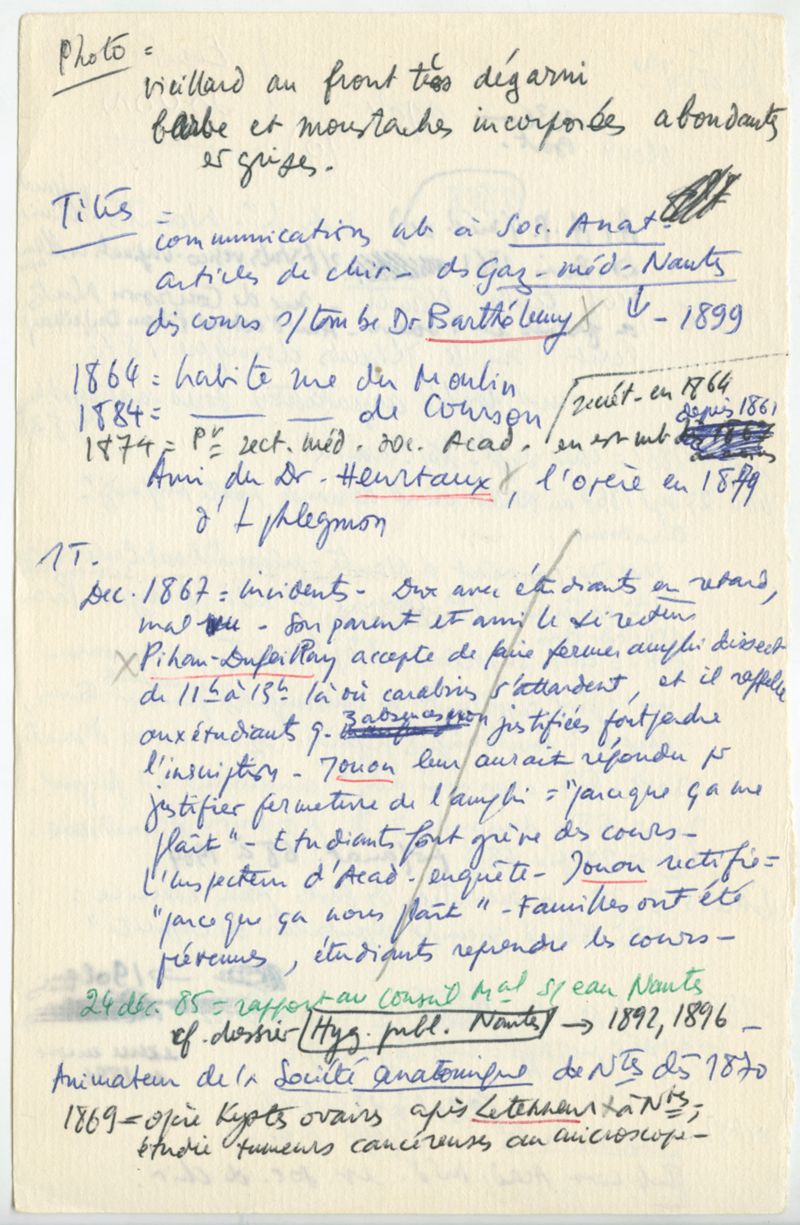 Photo =
vieillard au front très dégarni
barbe et moustaches incorporées abondantes
et grises.
Titres =
communications nb à Soc. Anat.
articles de chir - ds Gaz - méd - Nantes
discours s/tombe Dr Barthélemy X ↓ - 1899
1864 = habite rue du Moulin
1884 = —— — de Courson
secrét - en 1864
depuis 1861
1874 = Pt sect. méd. Soc. Acad. en est mb
Ami du Dr - Heurtaux X, l'opère en 1879
d' 1 phlegmon
1T.
Dec. 1867 = incidents - Dur avec étudiants en retard,
mal vu - Son parent et ami le directeur
X Pihan-Dufeillay accepte de faire fermer amphi dissect
de 11h à 13h là où carabins s'attardent, et il rappelle
aux étudiants q. 3 absences non justifiées font perdre
l'inscription - Jouon leur aurait répondu pr
justifier fermeture de l'amphi = "parce que ça me
plaît" - Etudiants font grève des cours -
L'inspecteur d'Acad - enquête - Jouon rectifie =
"parce que ça nous plaît" - Familles ont été
prévenues, étudiants reprendre les cours -
24 déc. 85 = rapport au conseil Mal s/ eau Nantes
cf. dossier Hyg. publ. Nantes → 1892, 1896 -
Animateur de la Société anatomique de Ntes dès 1870
1869 = opère Kystes ovaires après Letenneur X à Ntes,
étudie tumeurs cancéreuses au microscope -